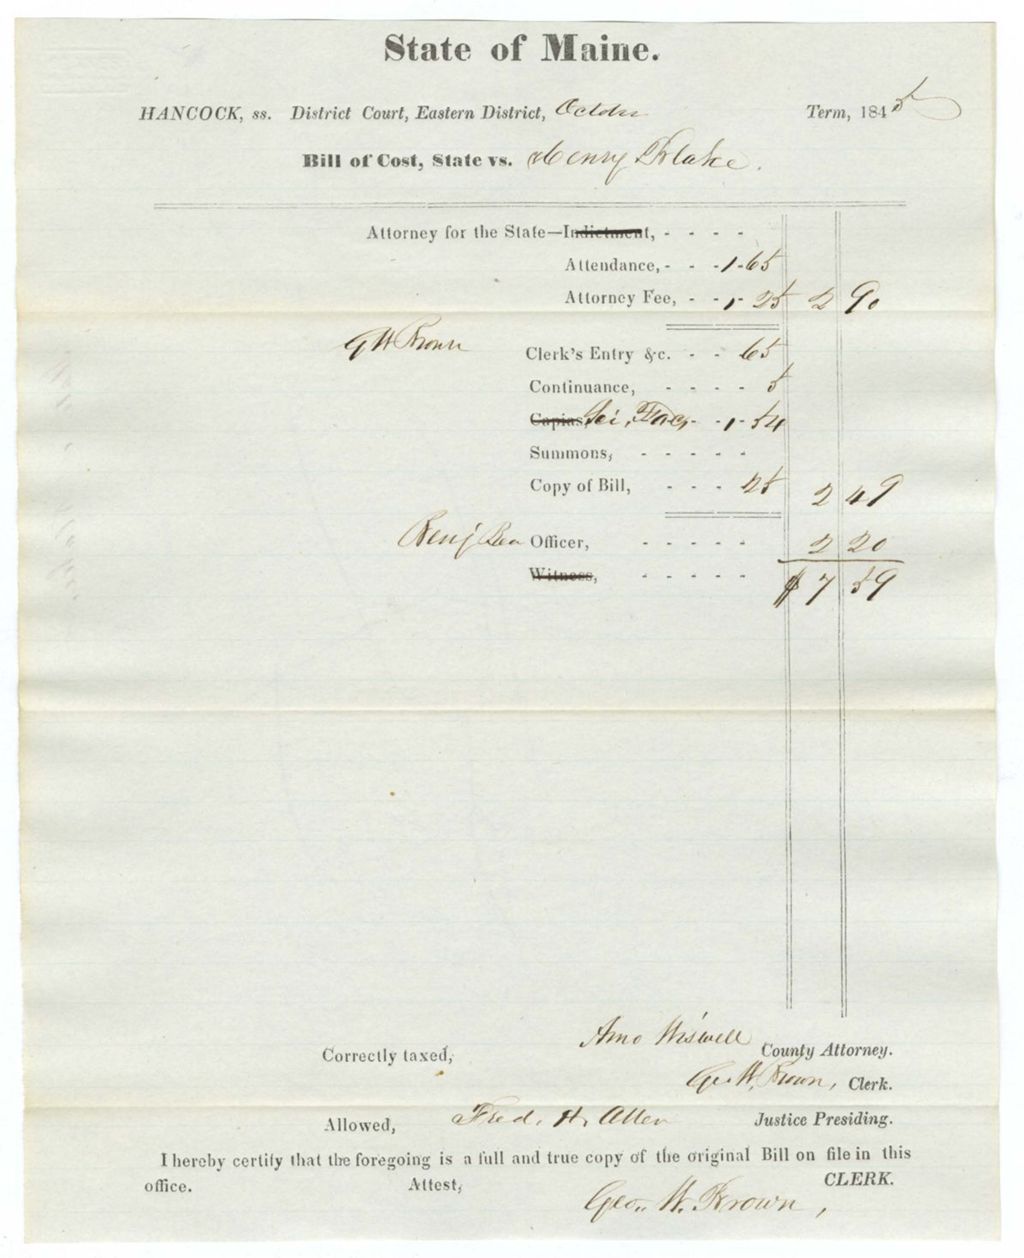 State of Maine.
HANCOCK, ss. District Court, Eastern District, October Term, 1845
Bill of Cost, State vs. Henry Blake.
Attorney for the State—Indictment, - - - -
Attendance, - - - 1-65
Attorney Fee, - - 1-25 2 90
G W Brown
Clerk's Entry &c. - - 65
Continuance, - - - - 5
Capias, Sci, Fac, - - 1-54
Summons, - - - - -
Copy of Bill, - - - 25 2 49
Benj Officer, - - - - - 2 20
Witness, - - - - - $ 7 59
Arno Wiswell
Correctly taxed, County Attorney.
Geo. W. Brown, Clerk.
Allowed, Fred. H. Allen Justice Presiding.
I hereby certify that the foregoing is a full and true copy of the original Bill on file in this
office. Attest, CLERK.
Geo.. W. Brown,